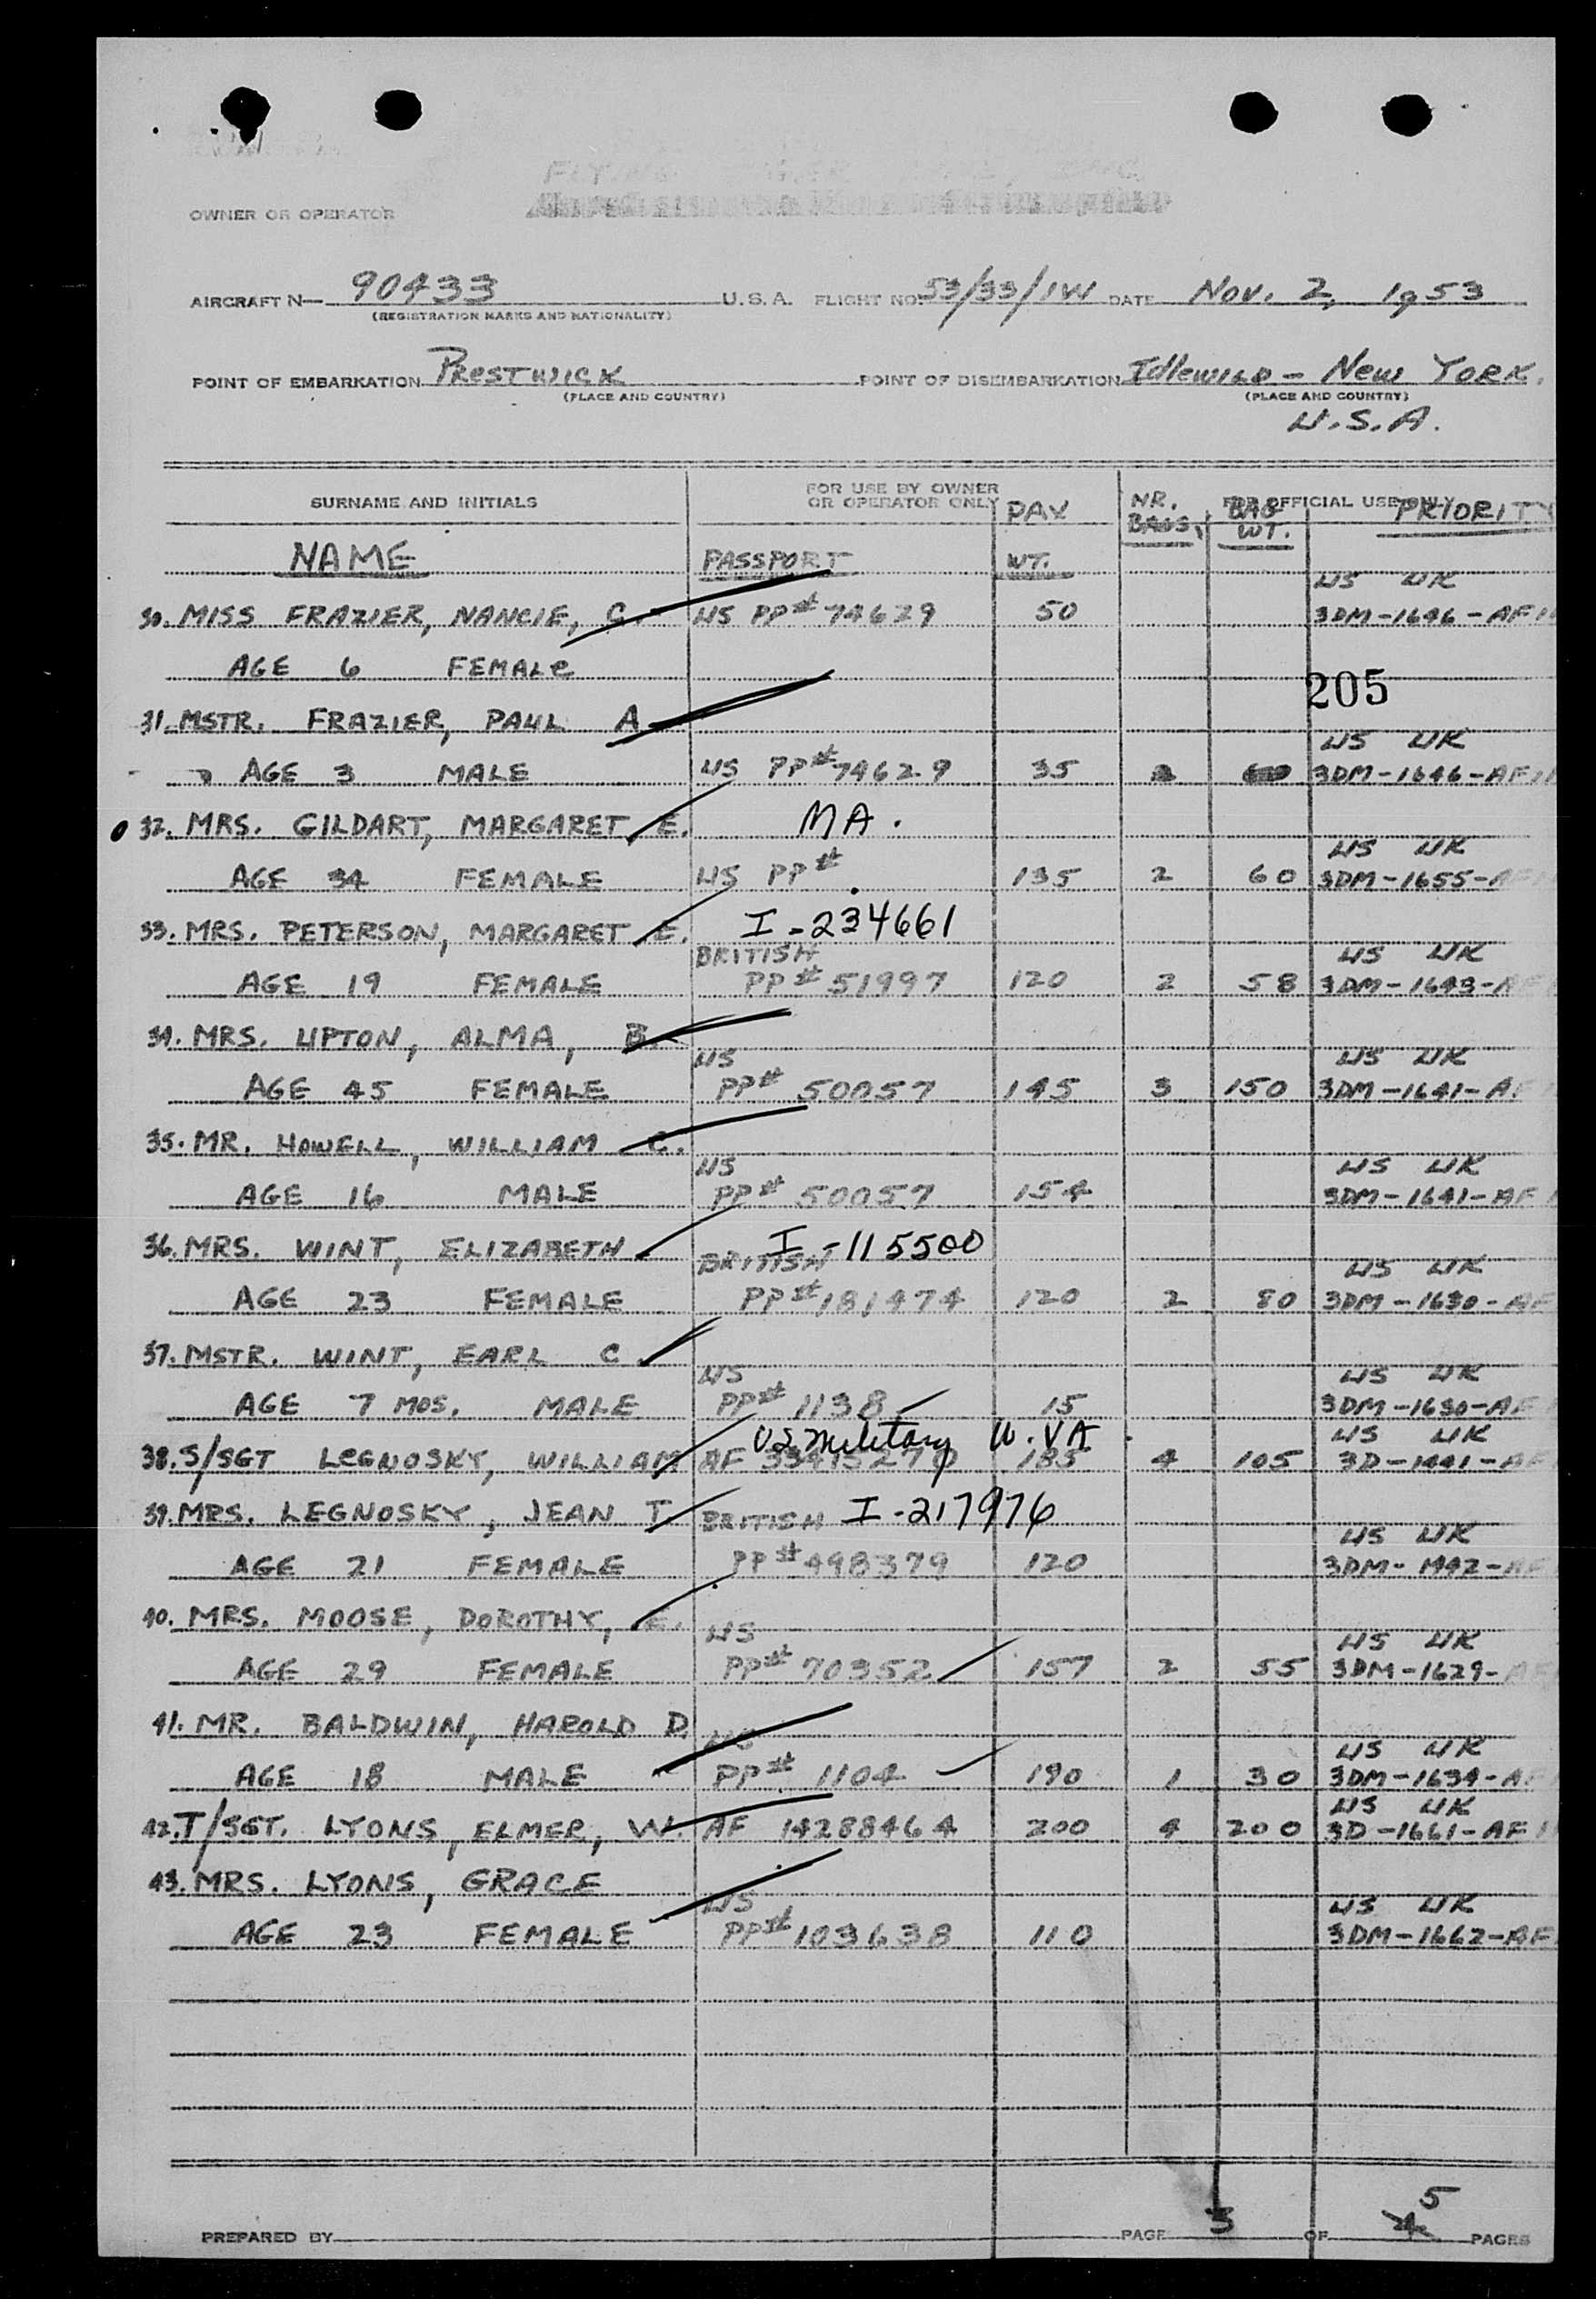 OWNER OR OPERATOR
AIRCRAFT N— 90433 U.S.A. FLIGHT NO. 53/33/1W DATE Nov. 2, 1953
(REGISTRATION MARKS AND NATIONALITY)
POINT OF EMBARKATION PRESTWICK POINT OF DISEMBARKATION IdleWILD - NEW YORK.
(PLACE AND COUNTRY) (PLACE AND COUNTRY)
U.S.A.
SURNAME AND INITIALS FOR USE BY OWNER OR OPERATOR ONLY FOR OFFICIAL USE ONLY
NAME PASSPORT PAX WT. NR. BAGS. BAG WT. PRIORITY
US UK
30. MISS FRAZIER, NANCIE, C. US PP# 74629 50 3DM-1646-AF
AGE 6 FEMALE
205
31. MSTR. FRAZIER, PAUL A
US UK
AGE 3 MALE US PP# 74629 35 3DM-1646-AF
32. MRS. GILDART, MARGARET E. MA.
US UK
AGE 34 FEMALE US PP# 135 2 60 3DM-1655-AF
33. MRS. PETERSON, MARGARET E. I-234661
BRITISH US UK
AGE 19 FEMALE PP# 51997 120 2 58 3DM-1643-AF
34. MRS. UPTON, ALMA, B.
US US UK
AGE 45 FEMALE PP# 50057 145 3 150 3DM-1641-AF
35. MR. HOWELL, WILLIAM C.
US US UK
AGE 16 MALE PP# 50057 154 3DM-1641-AF
36. MRS. WINT, ELIZABETH I-115500
BRITISH US UK
AGE 23 FEMALE PP# 181474 120 2 80 3DM-1630-AF
37. MSTR. WINT, EARL C.
US US UK
AGE 7 MOS. MALE PP# 1138 15 3DM-1630-AF
US Military W.VA. US UK
38. S/SGT LEGNOSKY, WILLIAM AF 185 4 105 3D-1441-AF
39. MRS. LEGNOSKY, JEAN T. BRITISH I-217976
US UK
AGE 21 FEMALE PP# 498379 120 3DM-1442-AF
40. MRS. MOOSE, DOROTHY, E.
US US UK
AGE 29 FEMALE PP# 70352 157 2 55 3DM-1629-AF
41. MR. BALDWIN, HAROLD D.
US US UK
AGE 18 MALE PP# 1104 190 1 30 3DM-1634-AF
US UK
42. T/SGT. LYONS, ELMER, W. AF 14288464 200 4 200 3D-1661-AF
43. MRS. LYONS, GRACE
US US UK
AGE 23 FEMALE PP# 103638 110 3DM-1662-AF
5
PREPARED BY PAGE 3 OF 4 PAGES